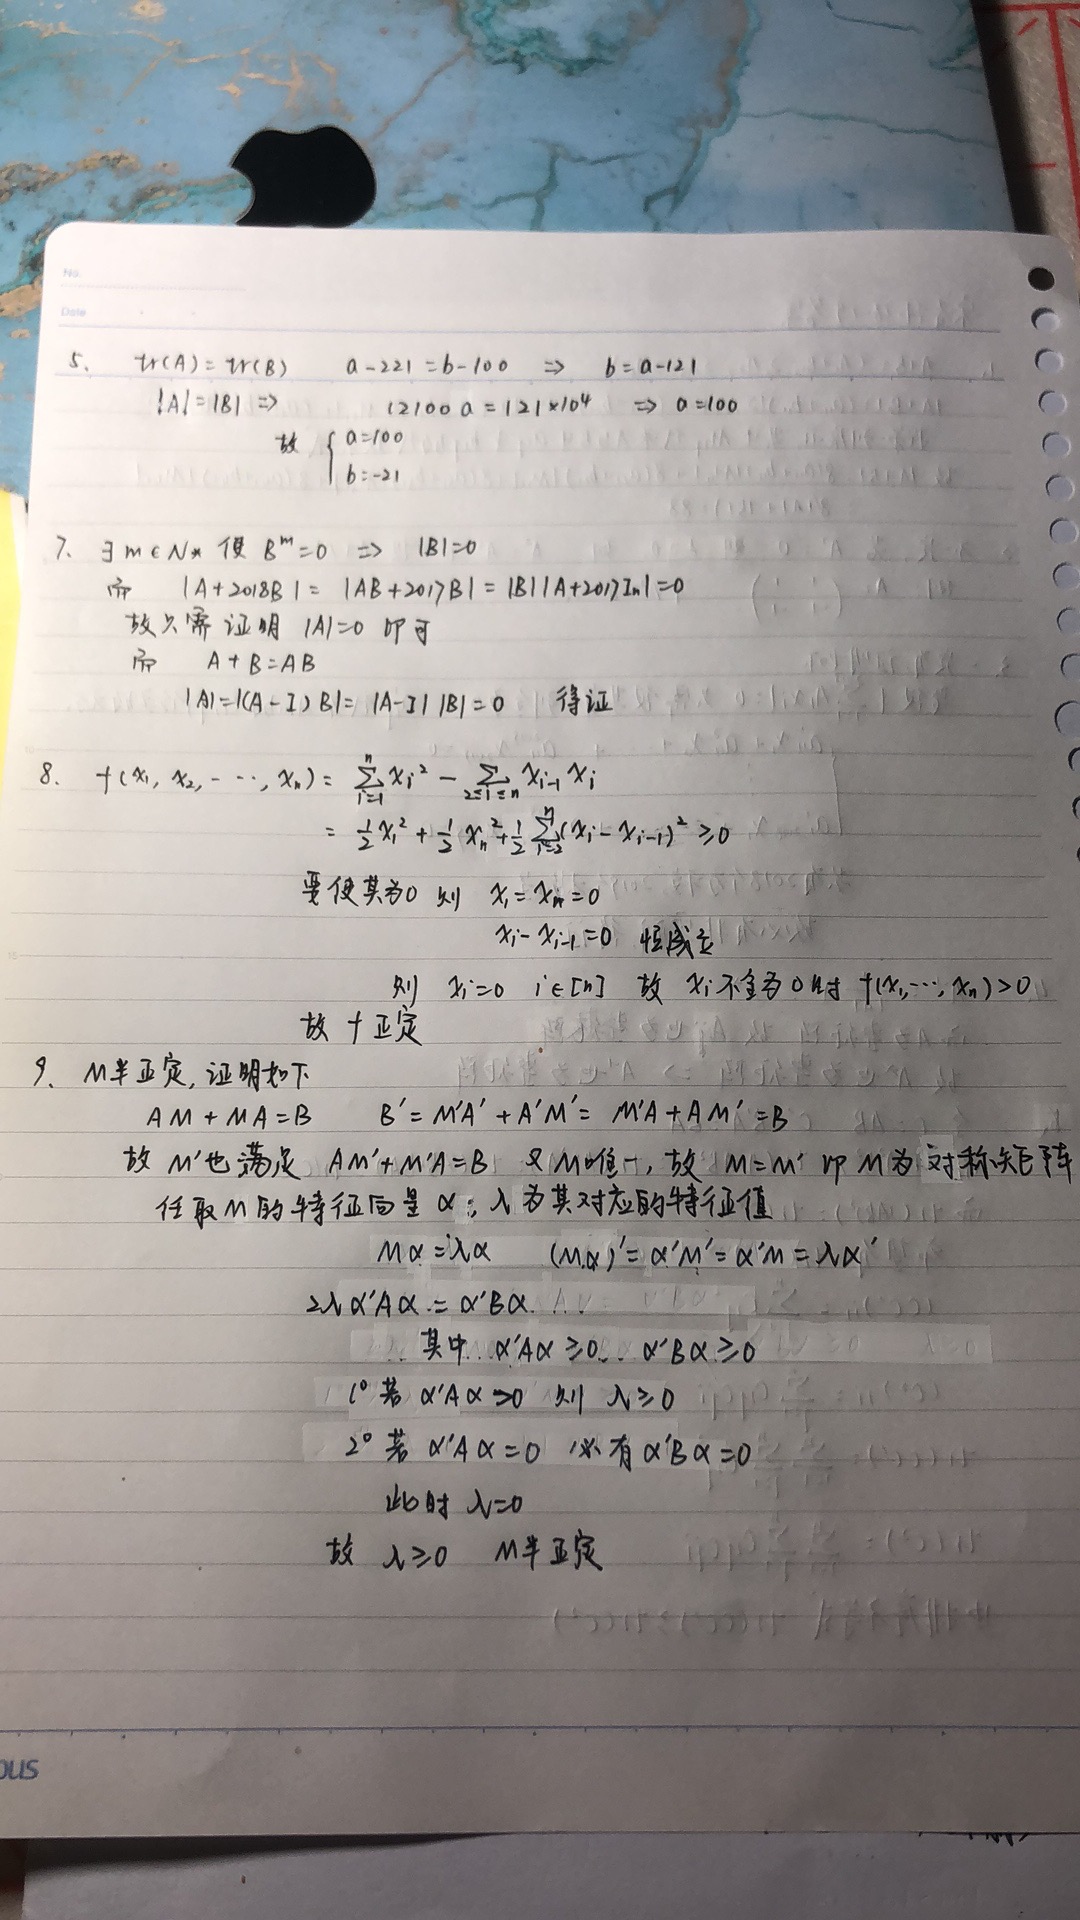 No.
Date
5、 tr(A)=tr(B) a-221=b-100 ⇒ b=a-121
|A|=|B| ⇒ 12100a=121×10⁴ ⇒ a=100
故 { a=100
b=-21
7、 ∃m∈N* 使 Bᵐ=0 ⇒ |B|=0
而 |A+2018B|=|AB+2017B|=|B||A+2017In|=0
故只需证明 |A|=0 即可
而 A+B=AB
|A|=|(A-I)B|=|A-I||B|=0 得证
8、 f(x₁,x₂,…,xₙ)=∑ⁿᵢ₌₁xᵢ²-∑₂≤ᵢ≤ₙxᵢ₋₁xᵢ
=½x₁²+½xₙ²+½∑ⁿᵢ₌₂(xᵢ-xᵢ₋₁)²≥0
要使其为0 则 x₁=xₙ=0
xᵢ-xᵢ₋₁=0 恒成立
则 xᵢ=0 i∈[n] 故 xᵢ不全为0时 f(x₁,…,xₙ)>0
故 f 正定
9、 M半正定,证明如下
AM+MA=B B'=M'A'+A'M'=M'A+AM'=B
故 M'也满足 AM'+M'A=B 又M唯一,故 M=M' 即M为对称矩阵
任取M的特征向量α;λ为其对应的特征值
Mα=λα (Mα)'=α'M'=α'M=λα'
2λα'Aα=α'Bα
其中 α'Aα≥0 α'Bα≥0
1° 若 α'Aα>0 则 λ≥0
2° 若 α'Aα=0 必有α'Bα=0
此时 λ=0
故 λ≥0 M半正定